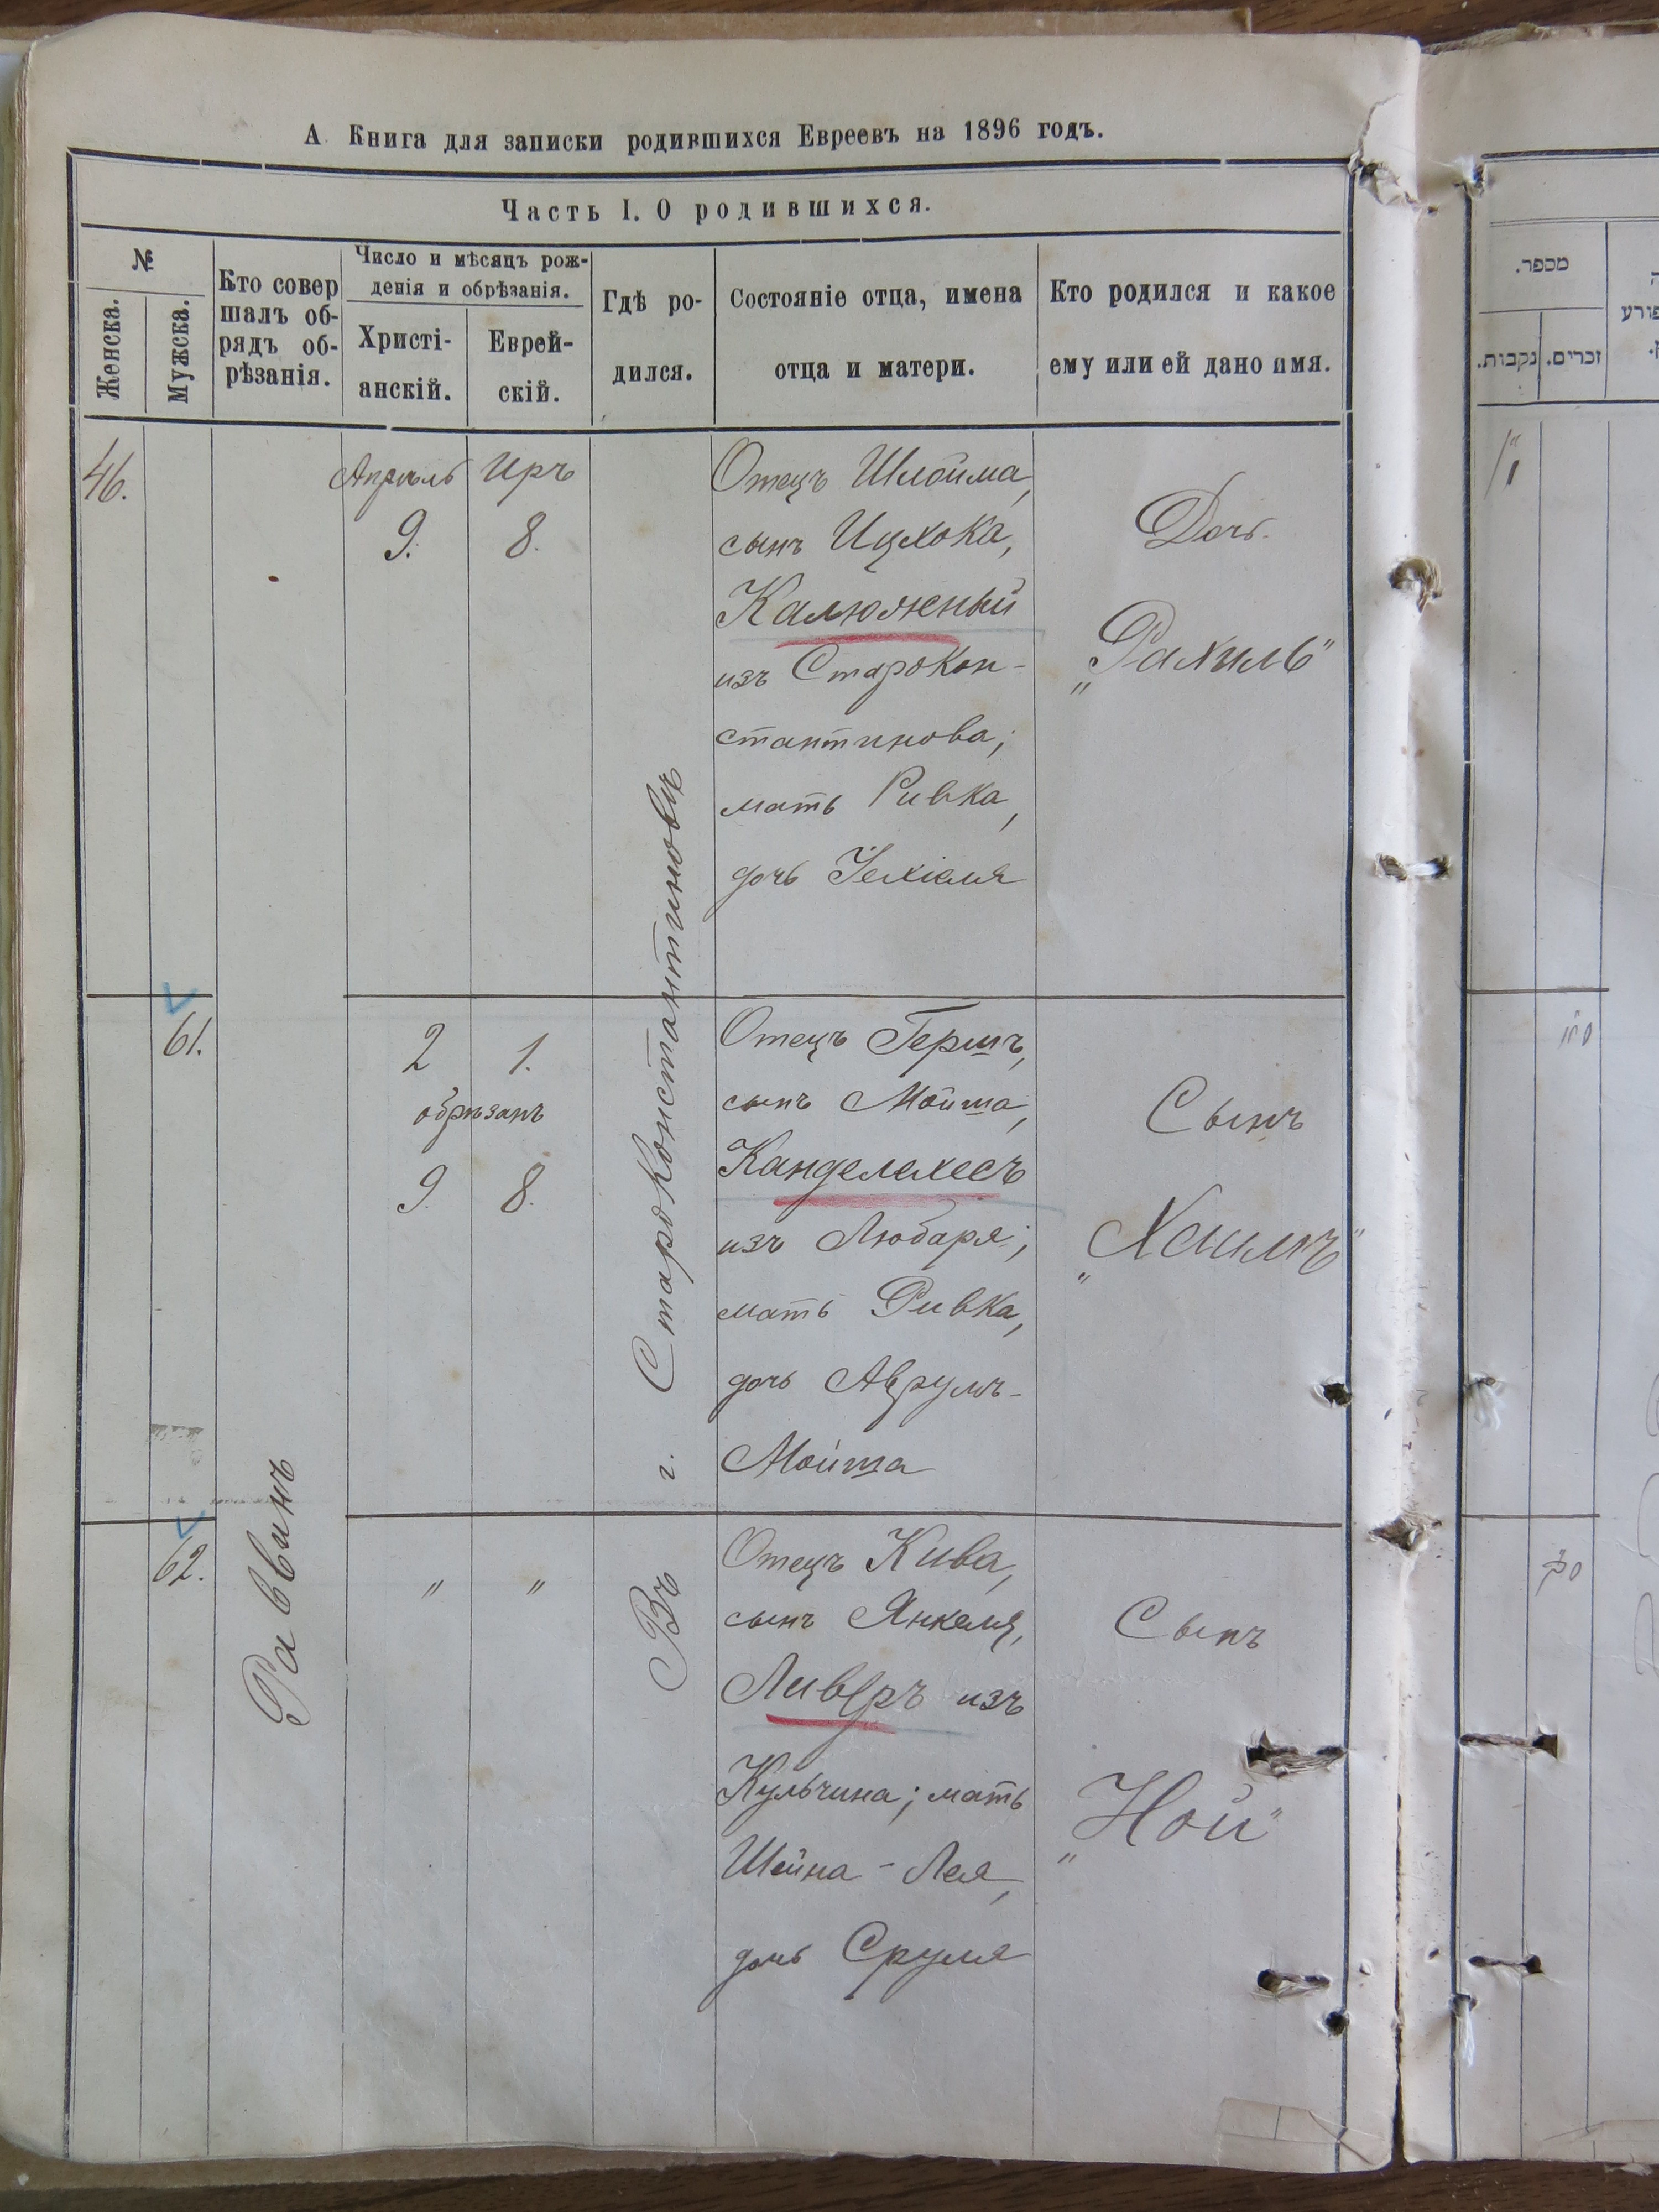 А. Книга для записки родившихся Евреевъ на 1896 годъ.
Часть I. О родившихся.
№
Женска.
Мужска.
Кто совер
шалъ об-
рядъ об-
рѣзанія.
Число и мѣсяцъ рож-
денія и обрѣзанія.
Христі-
анскій.
Еврей-
скій.
Гдѣ ро-
дился.
Состояніе отца, имена
отца и матери.
Кто родился и какое
ему или ей дано имя.
מספר.
נקבות.
זכרים.
46.
Апрель
9.
Иръ
8.
Отецъ Шлойма,
сынъ Ицхока,
Калюженый
изъ Старокон-
стантинова;
мать Ривка,
дочь Іехіеля
Дочь.
„Рахиль"
Раввинъ
Въ г. Староконстантиновѣ
61.
2 1.
обрѣзанъ
9. 8.
Отецъ Гершъ,
сынъ Мойша,
Канделехесъ
изъ Любаря;
мать Ривка,
дочь Аврумъ-
Мойша
Сынъ
„Хаимъ"
62.
" "
Отецъ Кива,
сынъ Янкеля,
Ливеръ изъ
Кульчина; мать
Шейна-Лея,
дочь Сруля
Сынъ
„Ной"